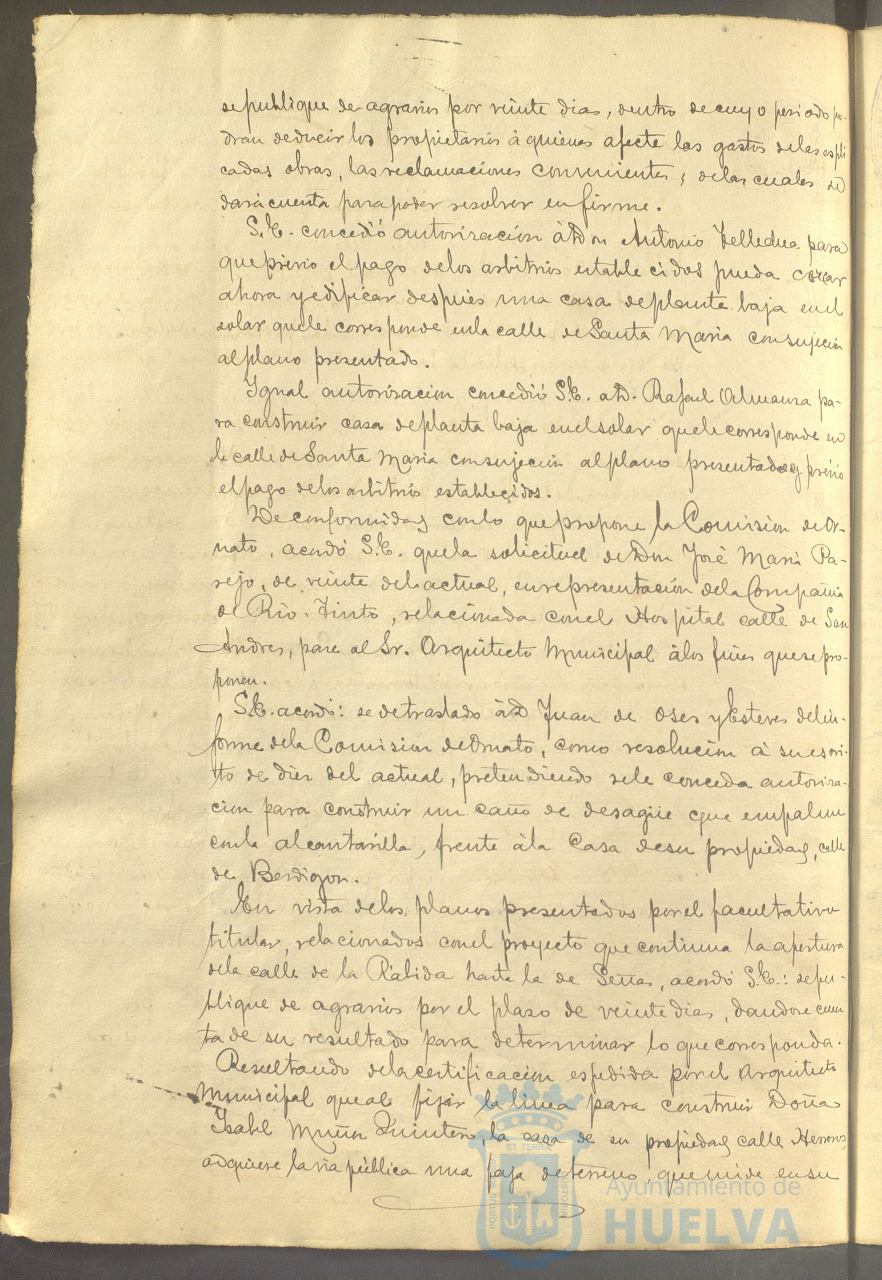 se publique de agravios por veinte dias, dentro de cuyo periodo po-
dran deducir los propietarios á quienes afecte los gastos de las espli
cadas obras, las reclamaciones convenientes; de las cuales se
dará cuenta para poder resolver en firme.
S.E. concedió autorización à Don Antonio para
que prévio el pago de los arbitrios establecidos pueda cercar
ahora y edificar despues una casa de planta baja en el
solar que le corresponde en la calle de Santa Maria con sujecion
al plano presentado.
Igual autorizacion concedió S.E. a D. Rafael Almansa pa-
ra construir casa de planta baja en el solar que le corresponde en
la calle de Santa Maria con sujecion al plano presentado y prévio
el pago de los arbitrios establecidos.
De conformidad con lo que propone la Comision de Or-
nato, acordó S.E. que la solicitud de Don José Maria Pa-
rejo, de veinte del actual, en representación de la Compañia
de Rio-Tinto, relacionada con el Hospital calle de San
Andres, pase al Sr. Arquitecto Municipal á los fines que se pro-
ponen.
S.E. acordó: se de traslado à D. Juan de Oses y Esteves del in-
forme de la Comision de Ornato, como resolucion á su escri-
to de diez del actual, pretendiendo se le conceda autoriza-
cion para construir un caño de desagüe que empalme
con la alcantarilla, frente á la Casa de su propiedad, calle
de Berdigon.
En vista de los planos presentados por el facultativo
titular, relacionados con el proyecto que continua la apertura
de la calle de la Rábida hasta la de Señas, acordó S.E.: se pu-
blique de agravios por el plazo de veinte dias, dandose cuen
ta de su resultado para determinar lo que corresponda.
Resultando de la certificacion espedida por el Arquitecto
Municipal que al fijar la linea para construir Doña
Isabel Muñoz Quintero, la casa de su propiedad calle Herreros,
adquiere la via pública una faja de terreno, que mide en su
Ayuntamiento de
HUELVA